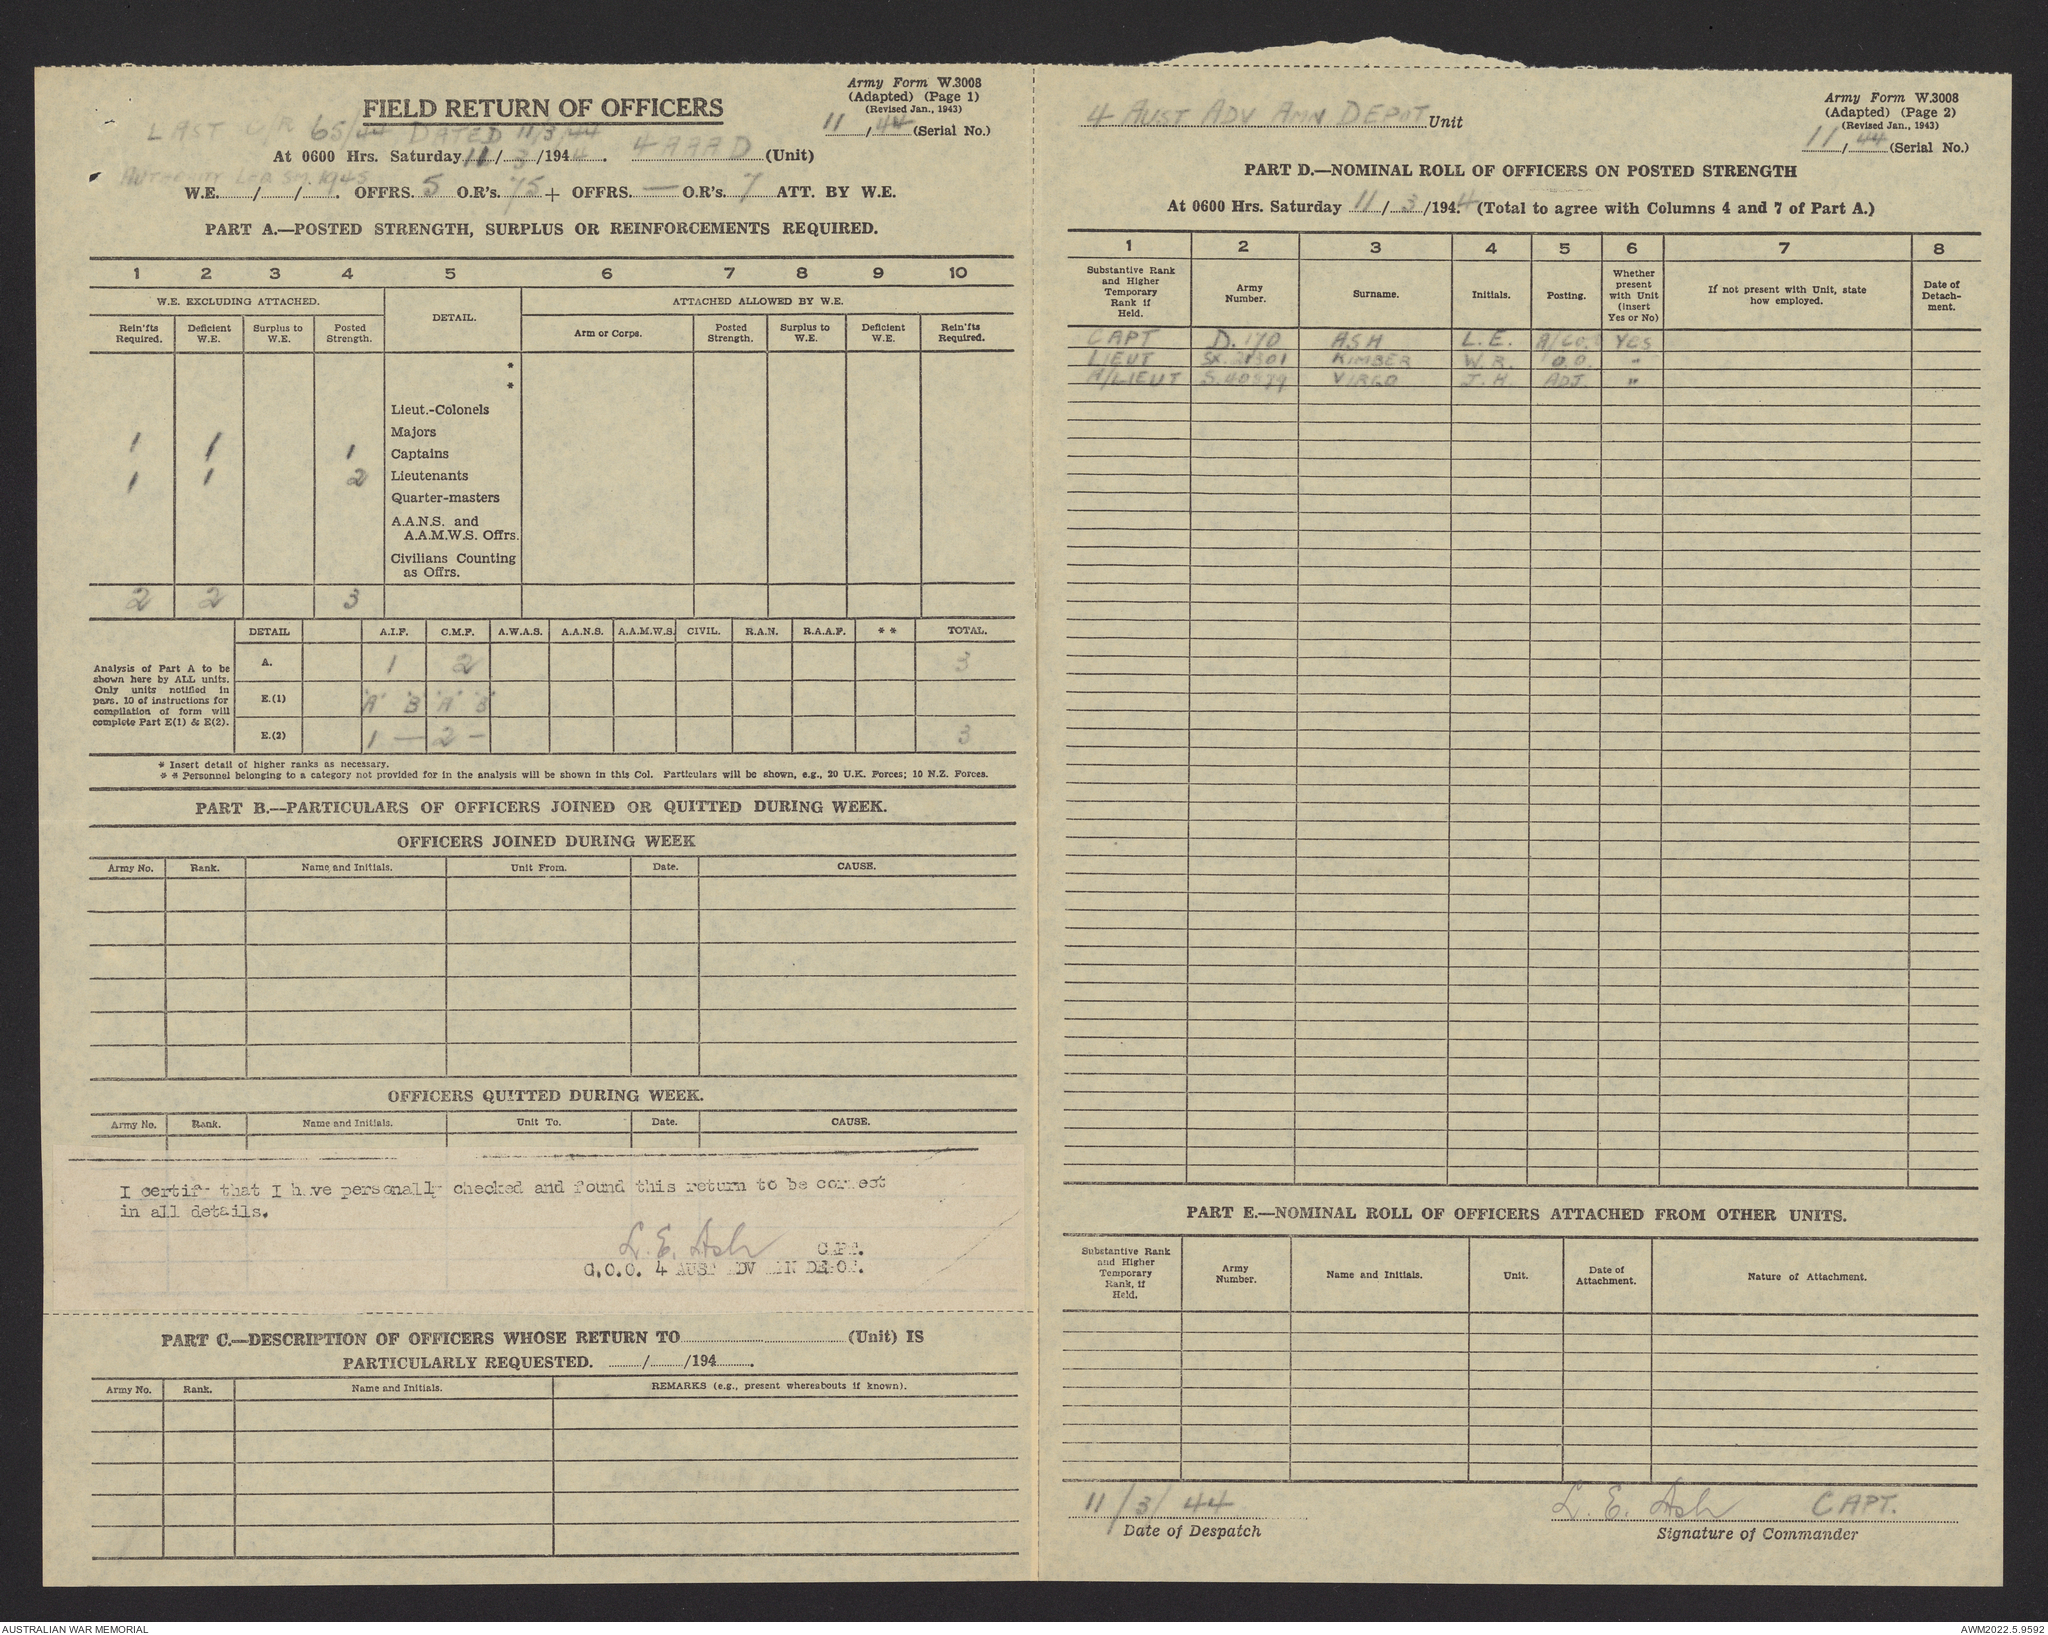 Army Form W.3008
(Adapted) (Page 1)
(Revised Jan., 1943)
11/44 (Serial No.)
FIELD RETURN OF OFFICERS
LAST O/R 65/44 DATED 11/3/44
At 0600 Hrs. Saturday 11/3/1944. 4 AAAD (Unit)
AUTHORITY LER SM. 1945
W.E. / / . OFFRS. 5 O.R's. 75 + OFFRS. — O.R's. 7 ATT. BY W.E.
PART A.—POSTED STRENGTH, SURPLUS OR REINFORCEMENTS REQUIRED.
1 2 3 4 5 6 7 8 9 10
W.E. EXCLUDING ATTACHED. DETAIL. ATTACHED ALLOWED BY W.E.
Rein'fts Required. Deficient W.E. Surplus to W.E. Posted Strength. Arm or Corps. Posted Strength. Surplus to W.E. Deficient W.E. Rein'fts Required.
*
*
Lieut.-Colonels
Majors
1 1 1 Captains
1 1 2 Lieutenants
Quarter-masters
A.A.N.S. and
A.A.M.W.S. Offrs.
Civilians Counting
as Offrs.
2 2 3
DETAIL A.I.F. C.M.F. A.W.A.S. A.A.N.S. A.A.M.W.S. CIVIL. R.A.N. R.A.A.F. * * TOTAL.
Analysis of Part A to be
shown here by ALL units.
Only units notified in
para. 10 of instructions for
compilation of form will
complete Part E(1) & E(2).
A. 1 2 3
E.(1) 'A' 'B' 'A' 'B'
E.(2) 1 — 2 — 3
* Insert detail of higher ranks as necessary.
* * Personnel belonging to a category not provided for in the analysis will be shown in this Col. Particulars will be shown, e.g., 20 U.K. Forces; 10 N.Z. Forces.
PART B.—PARTICULARS OF OFFICERS JOINED OR QUITTED DURING WEEK.
OFFICERS JOINED DURING WEEK
Army No. Rank. Name and Initials. Unit From. Date. CAUSE.
OFFICERS QUITTED DURING WEEK.
Army No. Rank. Name and Initials. Unit To. Date. CAUSE.
I certify that I have personally checked and found this return to be correct
in all details.
L. E. Ash CAPT.
C.O.O. 4 AUST ADV AMN DEPOT.
PART C.—DESCRIPTION OF OFFICERS WHOSE RETURN TO (Unit) IS
PARTICULARLY REQUESTED. / /194 .
Army No. Rank. Name and Initials. REMARKS (e.g., present whereabouts if known).
Army Form W.3008
(Adapted) (Page 2)
(Revised Jan., 1943)
11/44 (Serial No.)
4 AUST ADV AMN DEPOT Unit
PART D.—NOMINAL ROLL OF OFFICERS ON POSTED STRENGTH
At 0600 Hrs. Saturday 11/3/1944 (Total to agree with Columns 4 and 7 of Part A.)
1 2 3 4 5 6 7 8
Substantive Rank and Higher Temporary Rank if Held. Army Number. Surname. Initials. Posting. Whether present with Unit (insert Yes or No) If not present with Unit, state how employed. Date of Detach- ment.
CAPT D.170 ASH L.E. A/CO. YES
LIEUT SX.21301 KIMBER W.R. O.O. "
A/LIEUT S.40579 VIRGO J.H. ADJ. "
PART E.—NOMINAL ROLL OF OFFICERS ATTACHED FROM OTHER UNITS.
Substantive Rank and Higher Temporary Rank, if Held. Army Number. Name and Initials. Unit. Date of Attachment. Nature of Attachment.
11/3/44 L. E. Ash CAPT.
Date of Despatch Signature of Commander
AUSTRALIAN WAR MEMORIAL AWM2022.5.9592